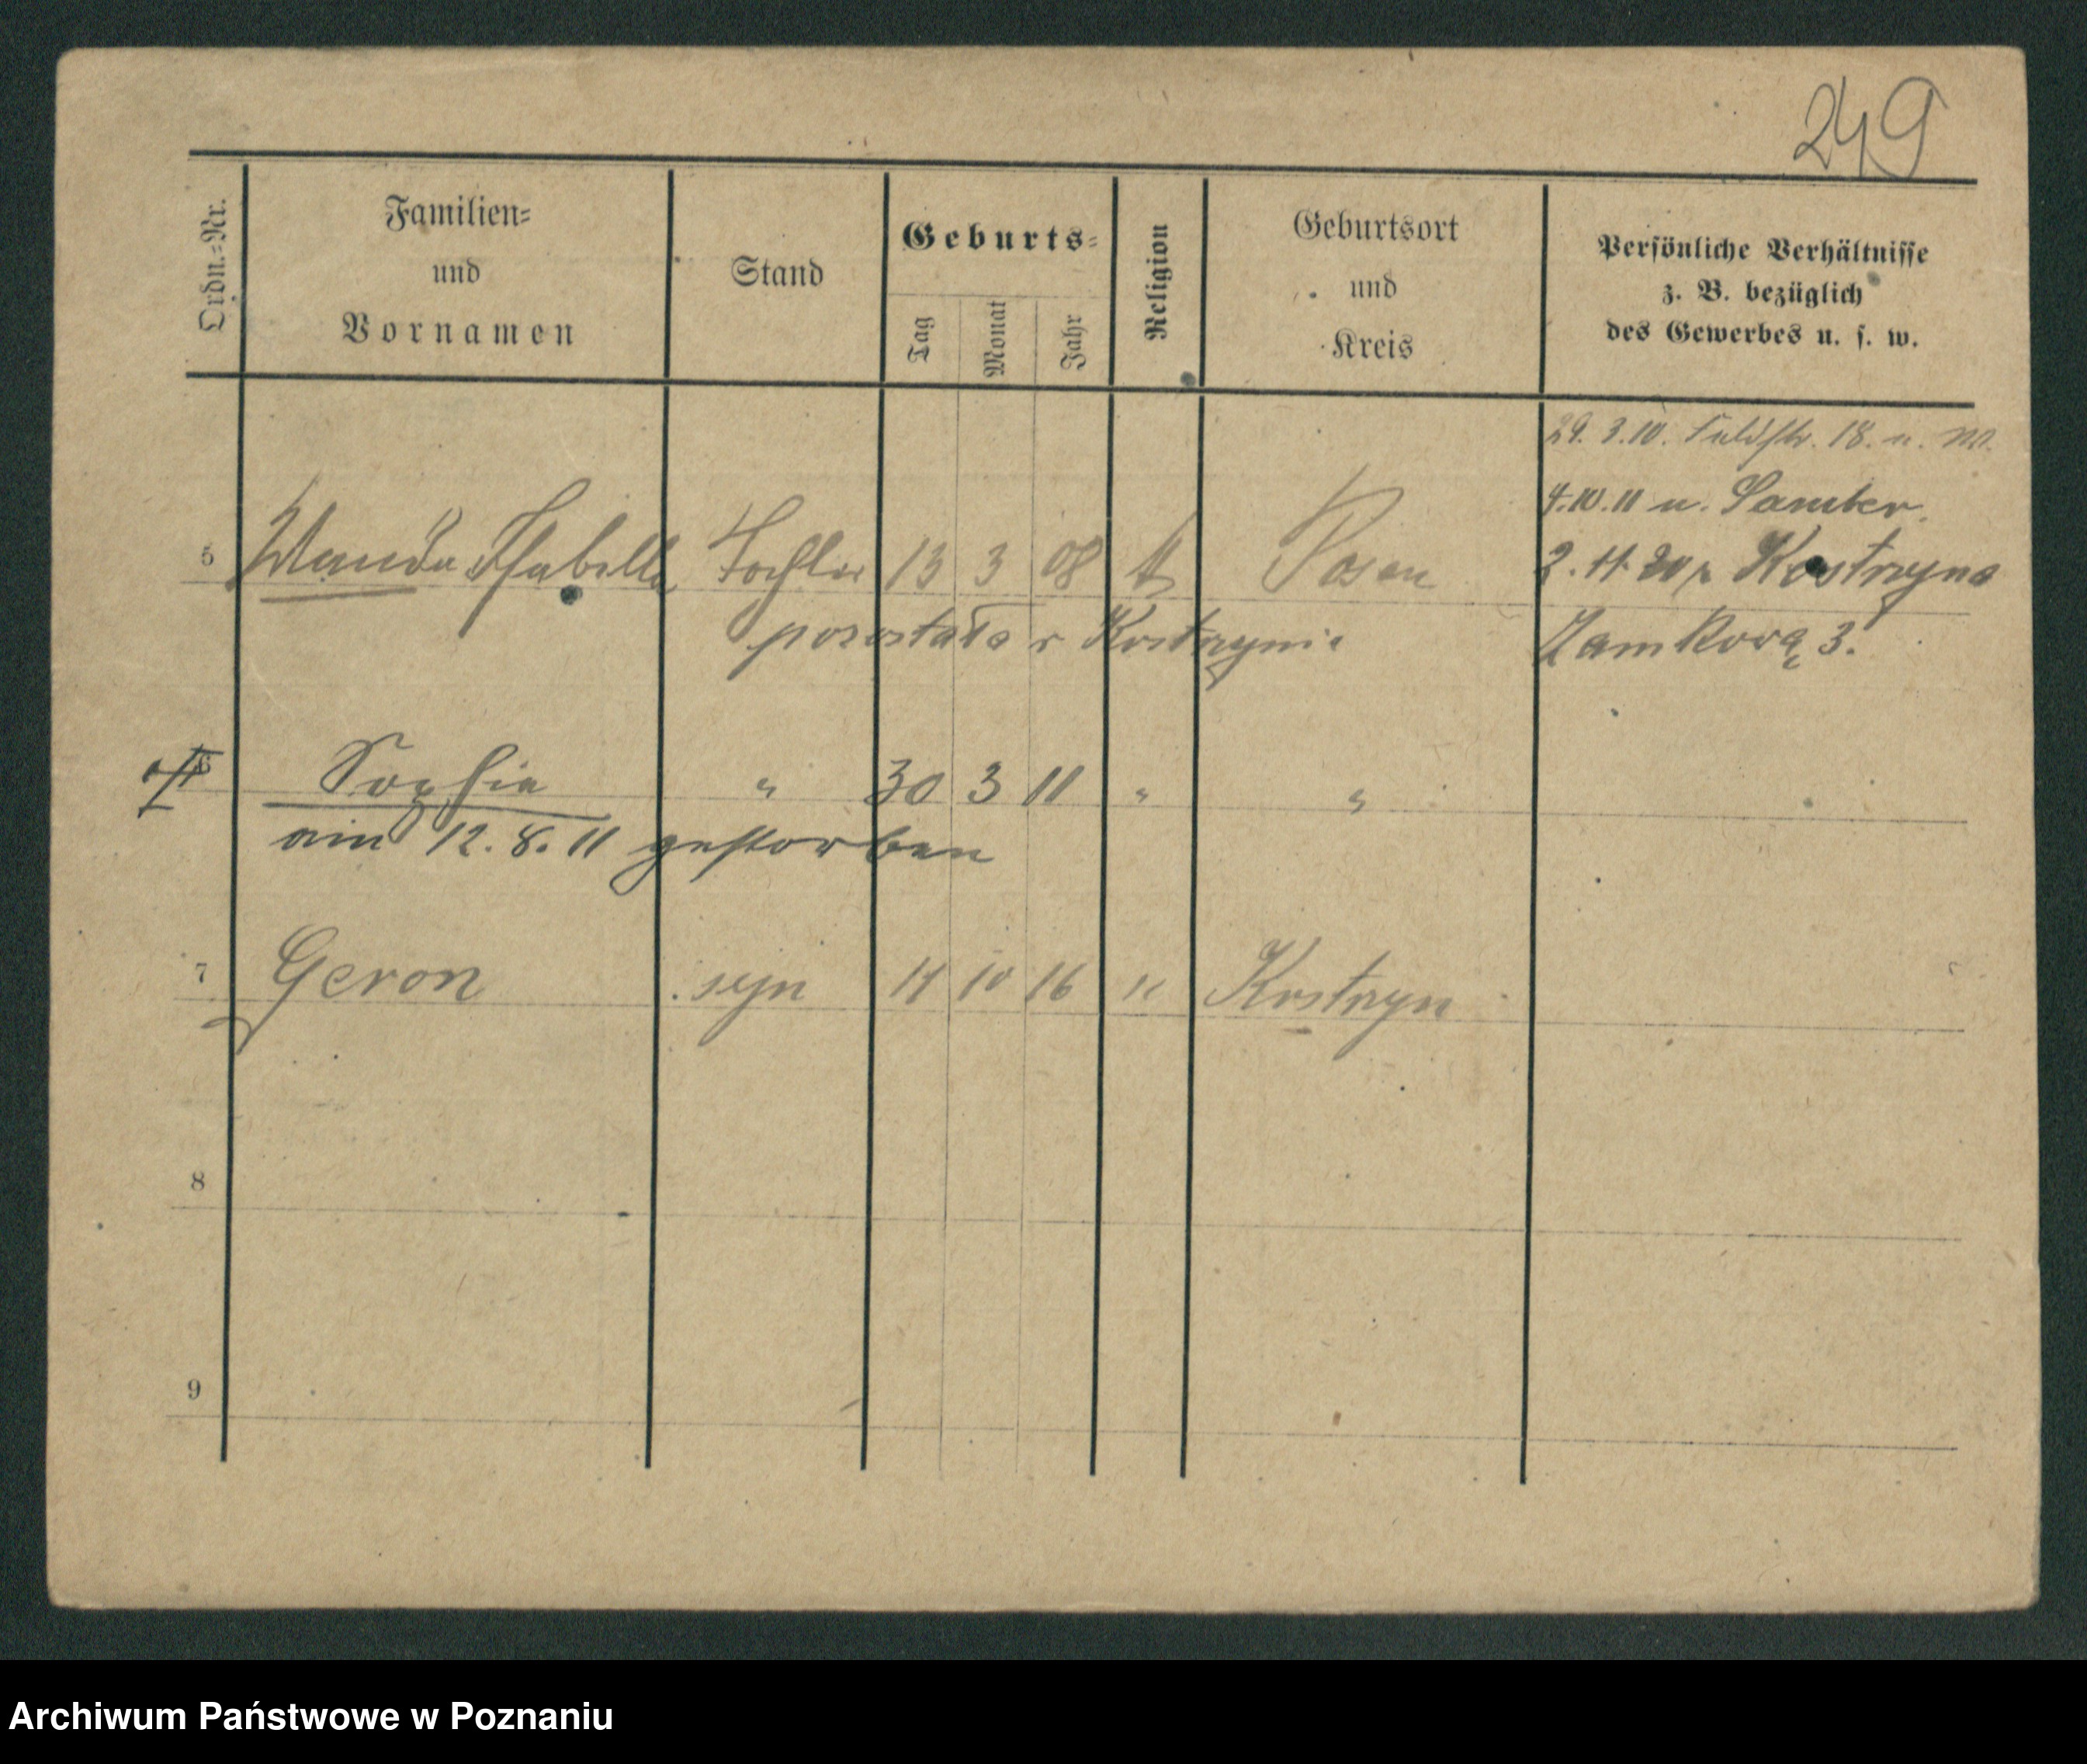 249
Ordn.-Nr.
Familien-
und
Vornamen
Stand
Geburts-
Tag
Monat
Jahr
Religion
Geburtsort
und
Kreis
Persönliche Verhältnisse
z. B. bezüglich
des Gewerbes u. s. w.
29. 3. 10. Feldstr. 18. u. W.
4.10.11 n. Samter.
5 Wanda Isabella Tochter 13 3 08 k Posen 2. 11. 20 z Kostrzyna
pozostała w Kostrzynie Zamkową 3.
6 Sophia " 30 3 11 " "
am 12. 8. 11 gestorben
7 Geron syn 14 10 16 " Kostrzyn
8
9
Archiwum Państwowe w Poznaniu